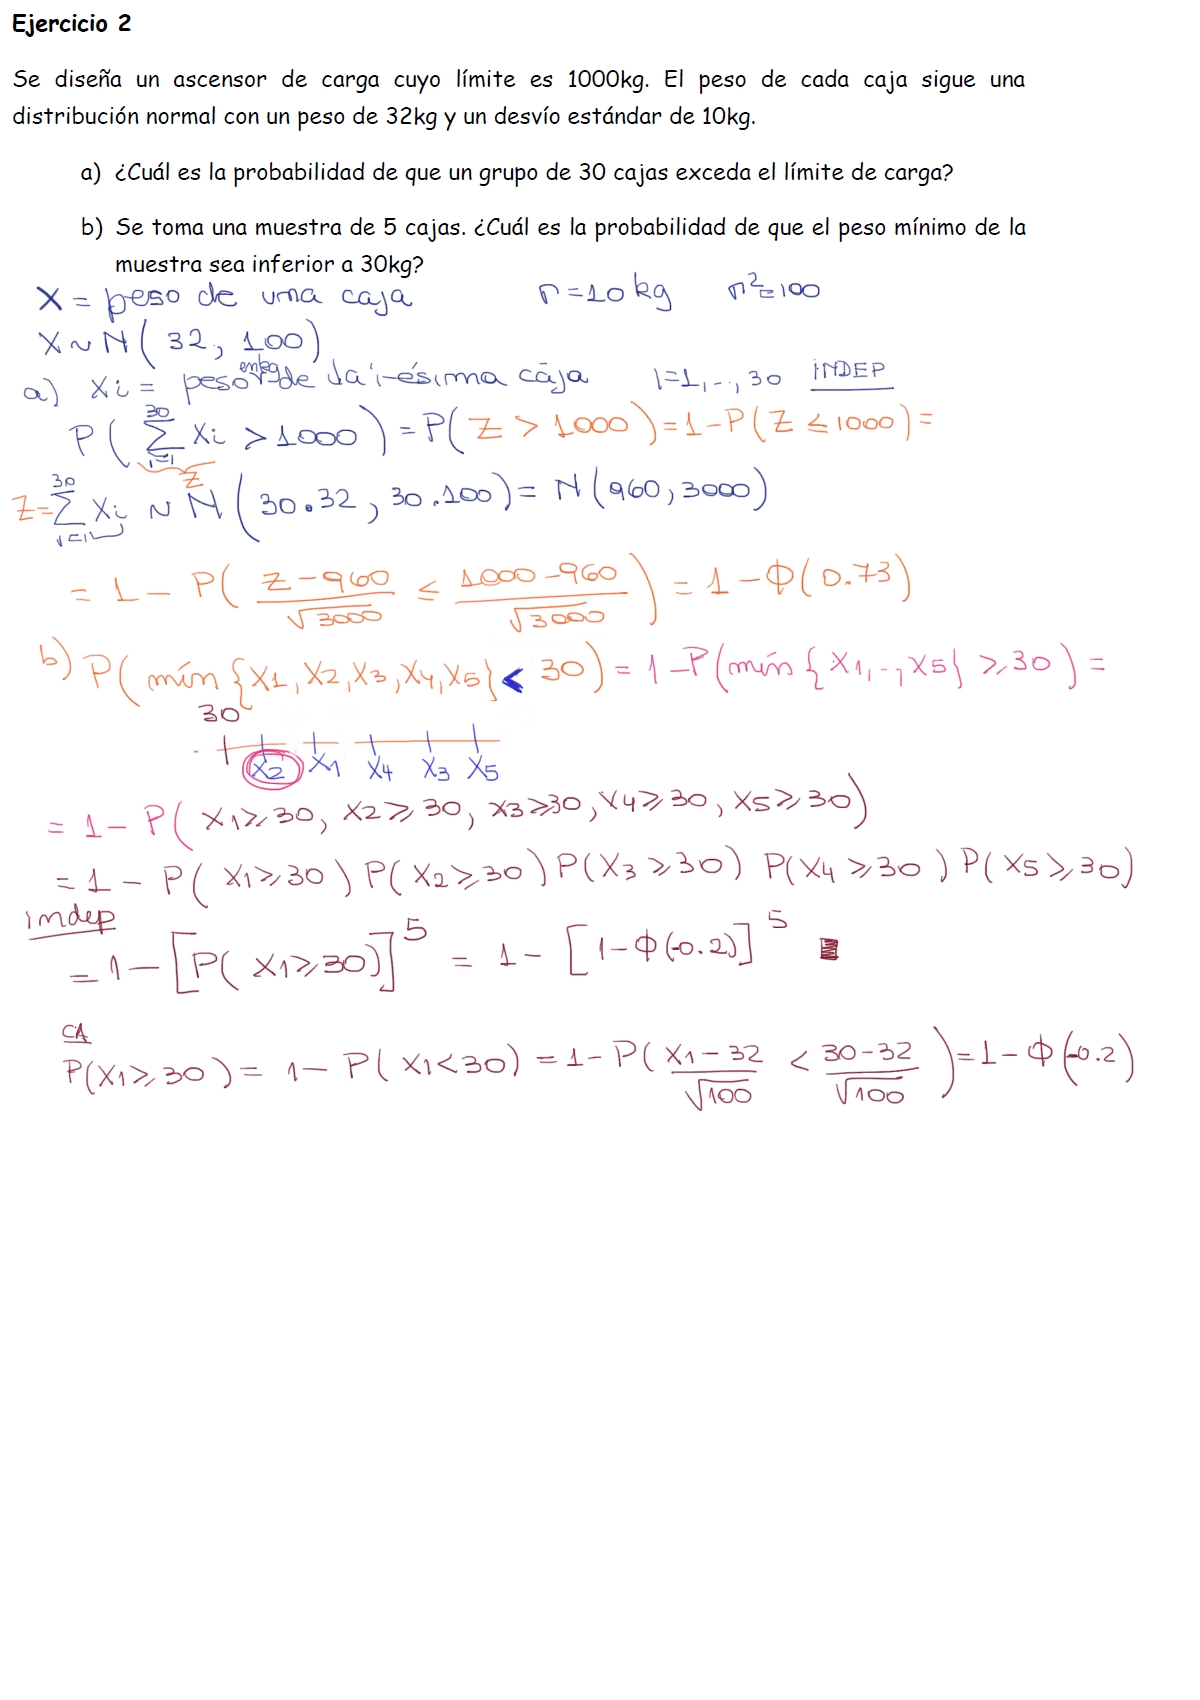 Ejercicio 2
Se diseña un ascensor de carga cuyo límite es 1000kg. El peso de cada caja sigue una
distribución normal con un peso de 32kg y un desvío estándar de 10kg.
a) ¿Cuál es la probabilidad de que un grupo de 30 cajas exceda el límite de carga?
b) Se toma una muestra de 5 cajas. ¿Cuál es la probabilidad de que el peso mínimo de la
muestra sea inferior a 30kg?
X = peso de una caja σ=10kg σ²=100
X~N(32, 100)
a) Xi = peso en kg de la i-ésima caja i=1,..,30 INDEP
P(∑_{i=1}^{30} Xi > 1000) = P(Z > 1000) = 1-P(Z ≤ 1000) =
Z
Z=∑_{i=1}^{30} Xi ~ N(30.32, 30.100) = N(960, 3000)
= 1 - P((Z-960)/√3000 ≤ (1000-960)/√3000) = 1-Φ(0.73)
b) P(mín{X1,X2,X3,X4,X5} < 30) = 1-P(mín{X1,..,X5} ≥ 30) =
30
X2 X1 X4 X3 X5
= 1- P(X1≥30, X2≥30, X3≥30, X4≥30, X5≥30)
= 1 - P(X1≥30) P(X2≥30) P(X3≥30) P(X4≥30) P(X5≥30)
indep
= 1-[P(X1≥30)]^5 = 1-[1-Φ(-0.2)]^5
CA
P(X1≥30) = 1- P(X1<30) = 1- P((X1-32)/√100 < (30-32)/√100) = 1-Φ(-0.2)